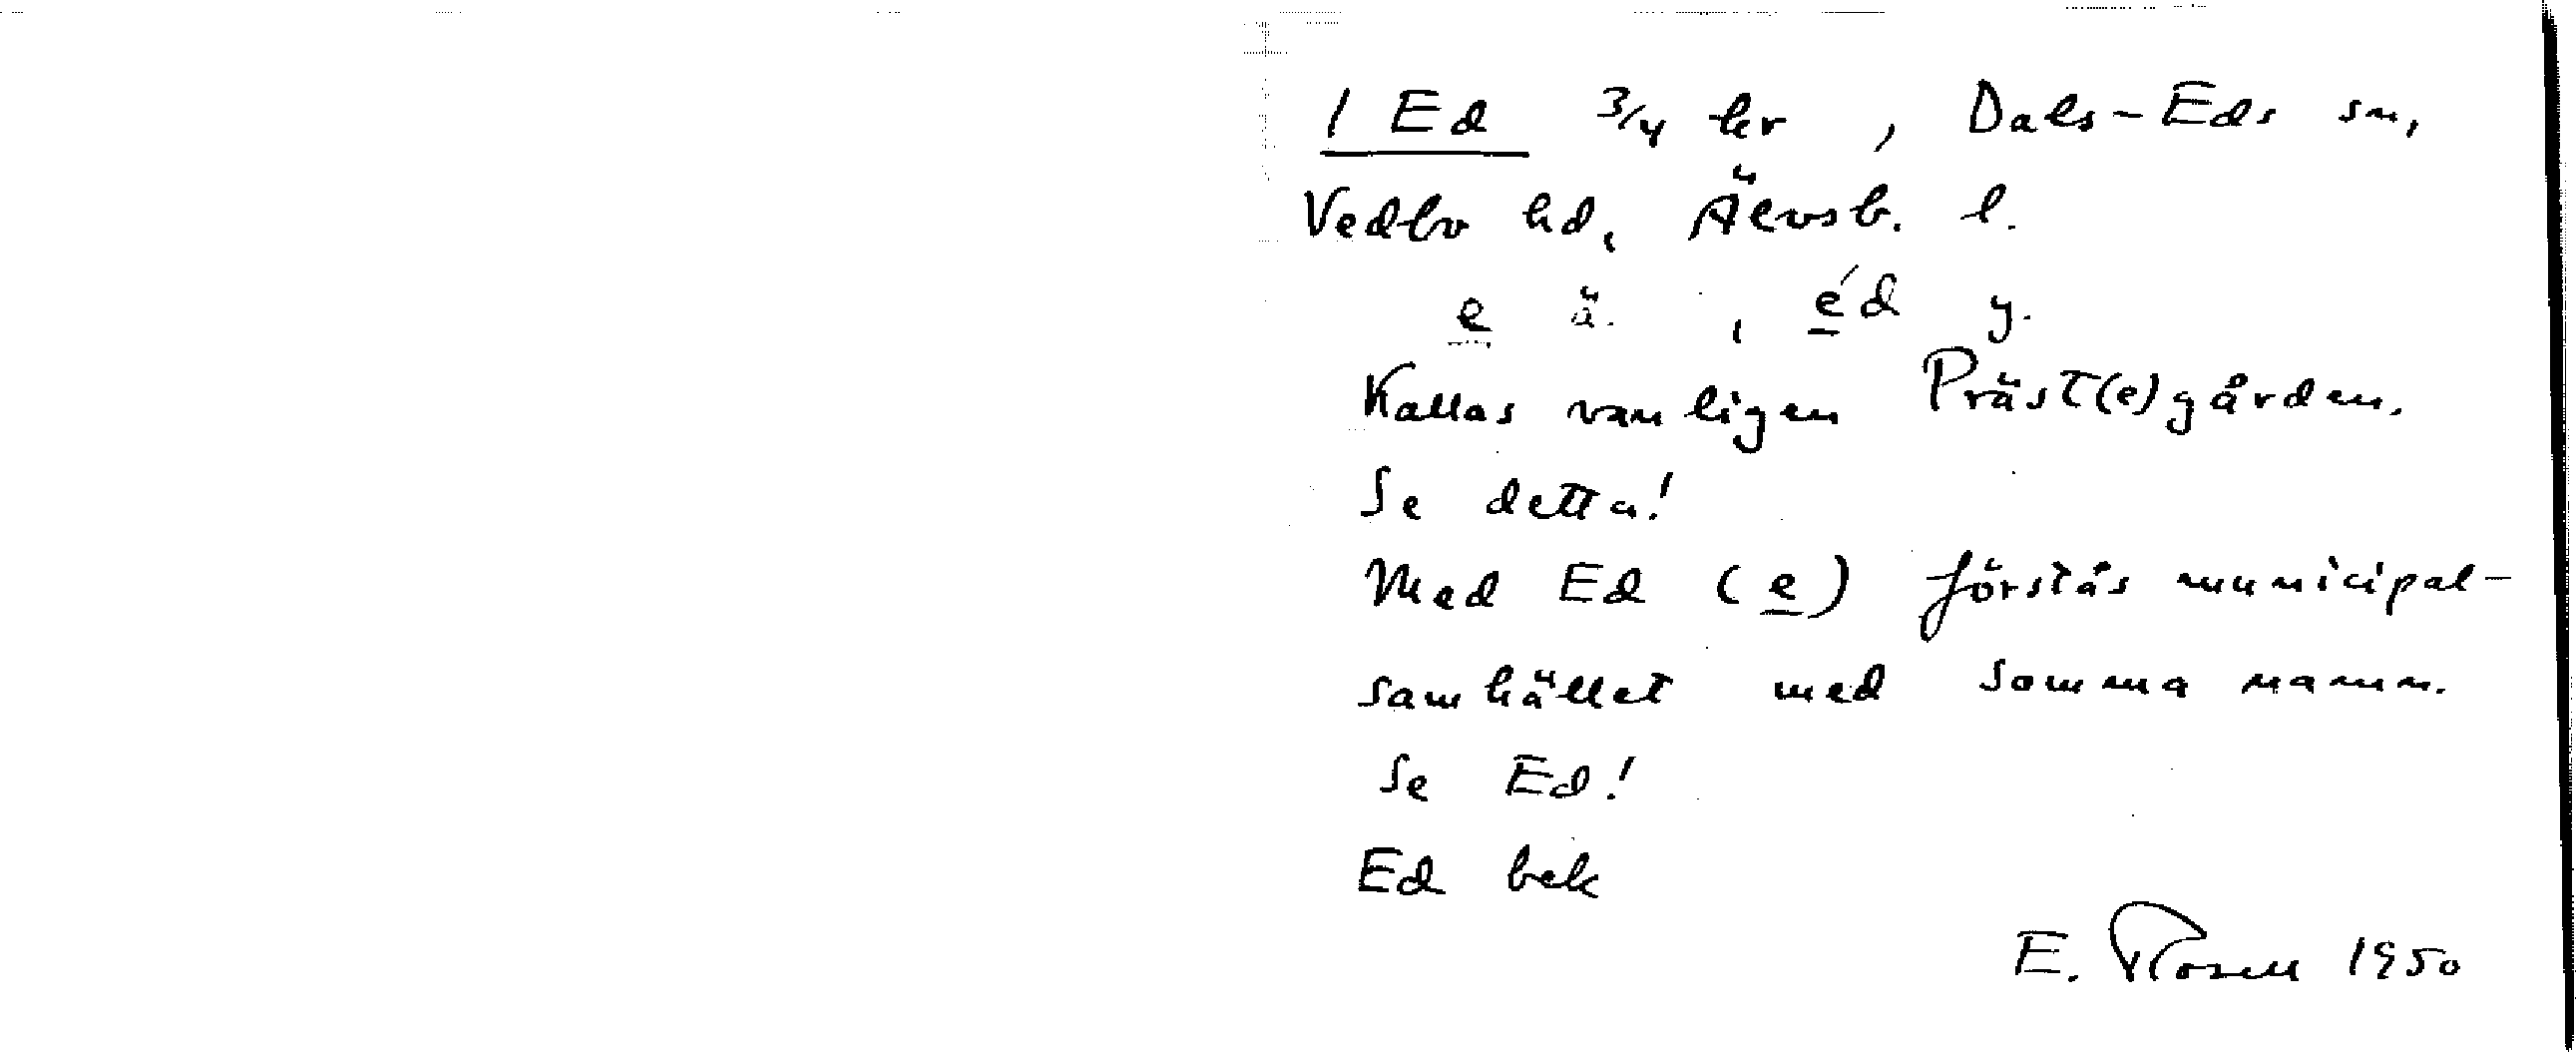 1 Ed 3/4 kr, Dals-Eds sn,
Vedbo hd, Älvsb. l.
e ä., éd y.
Kallas vanligen Präst(e)gården.
Se detta!
Med Ed (e) förstås municipal-
samhället med samma namn.
Se Ed!
Ed bek
E. Rosell 1950